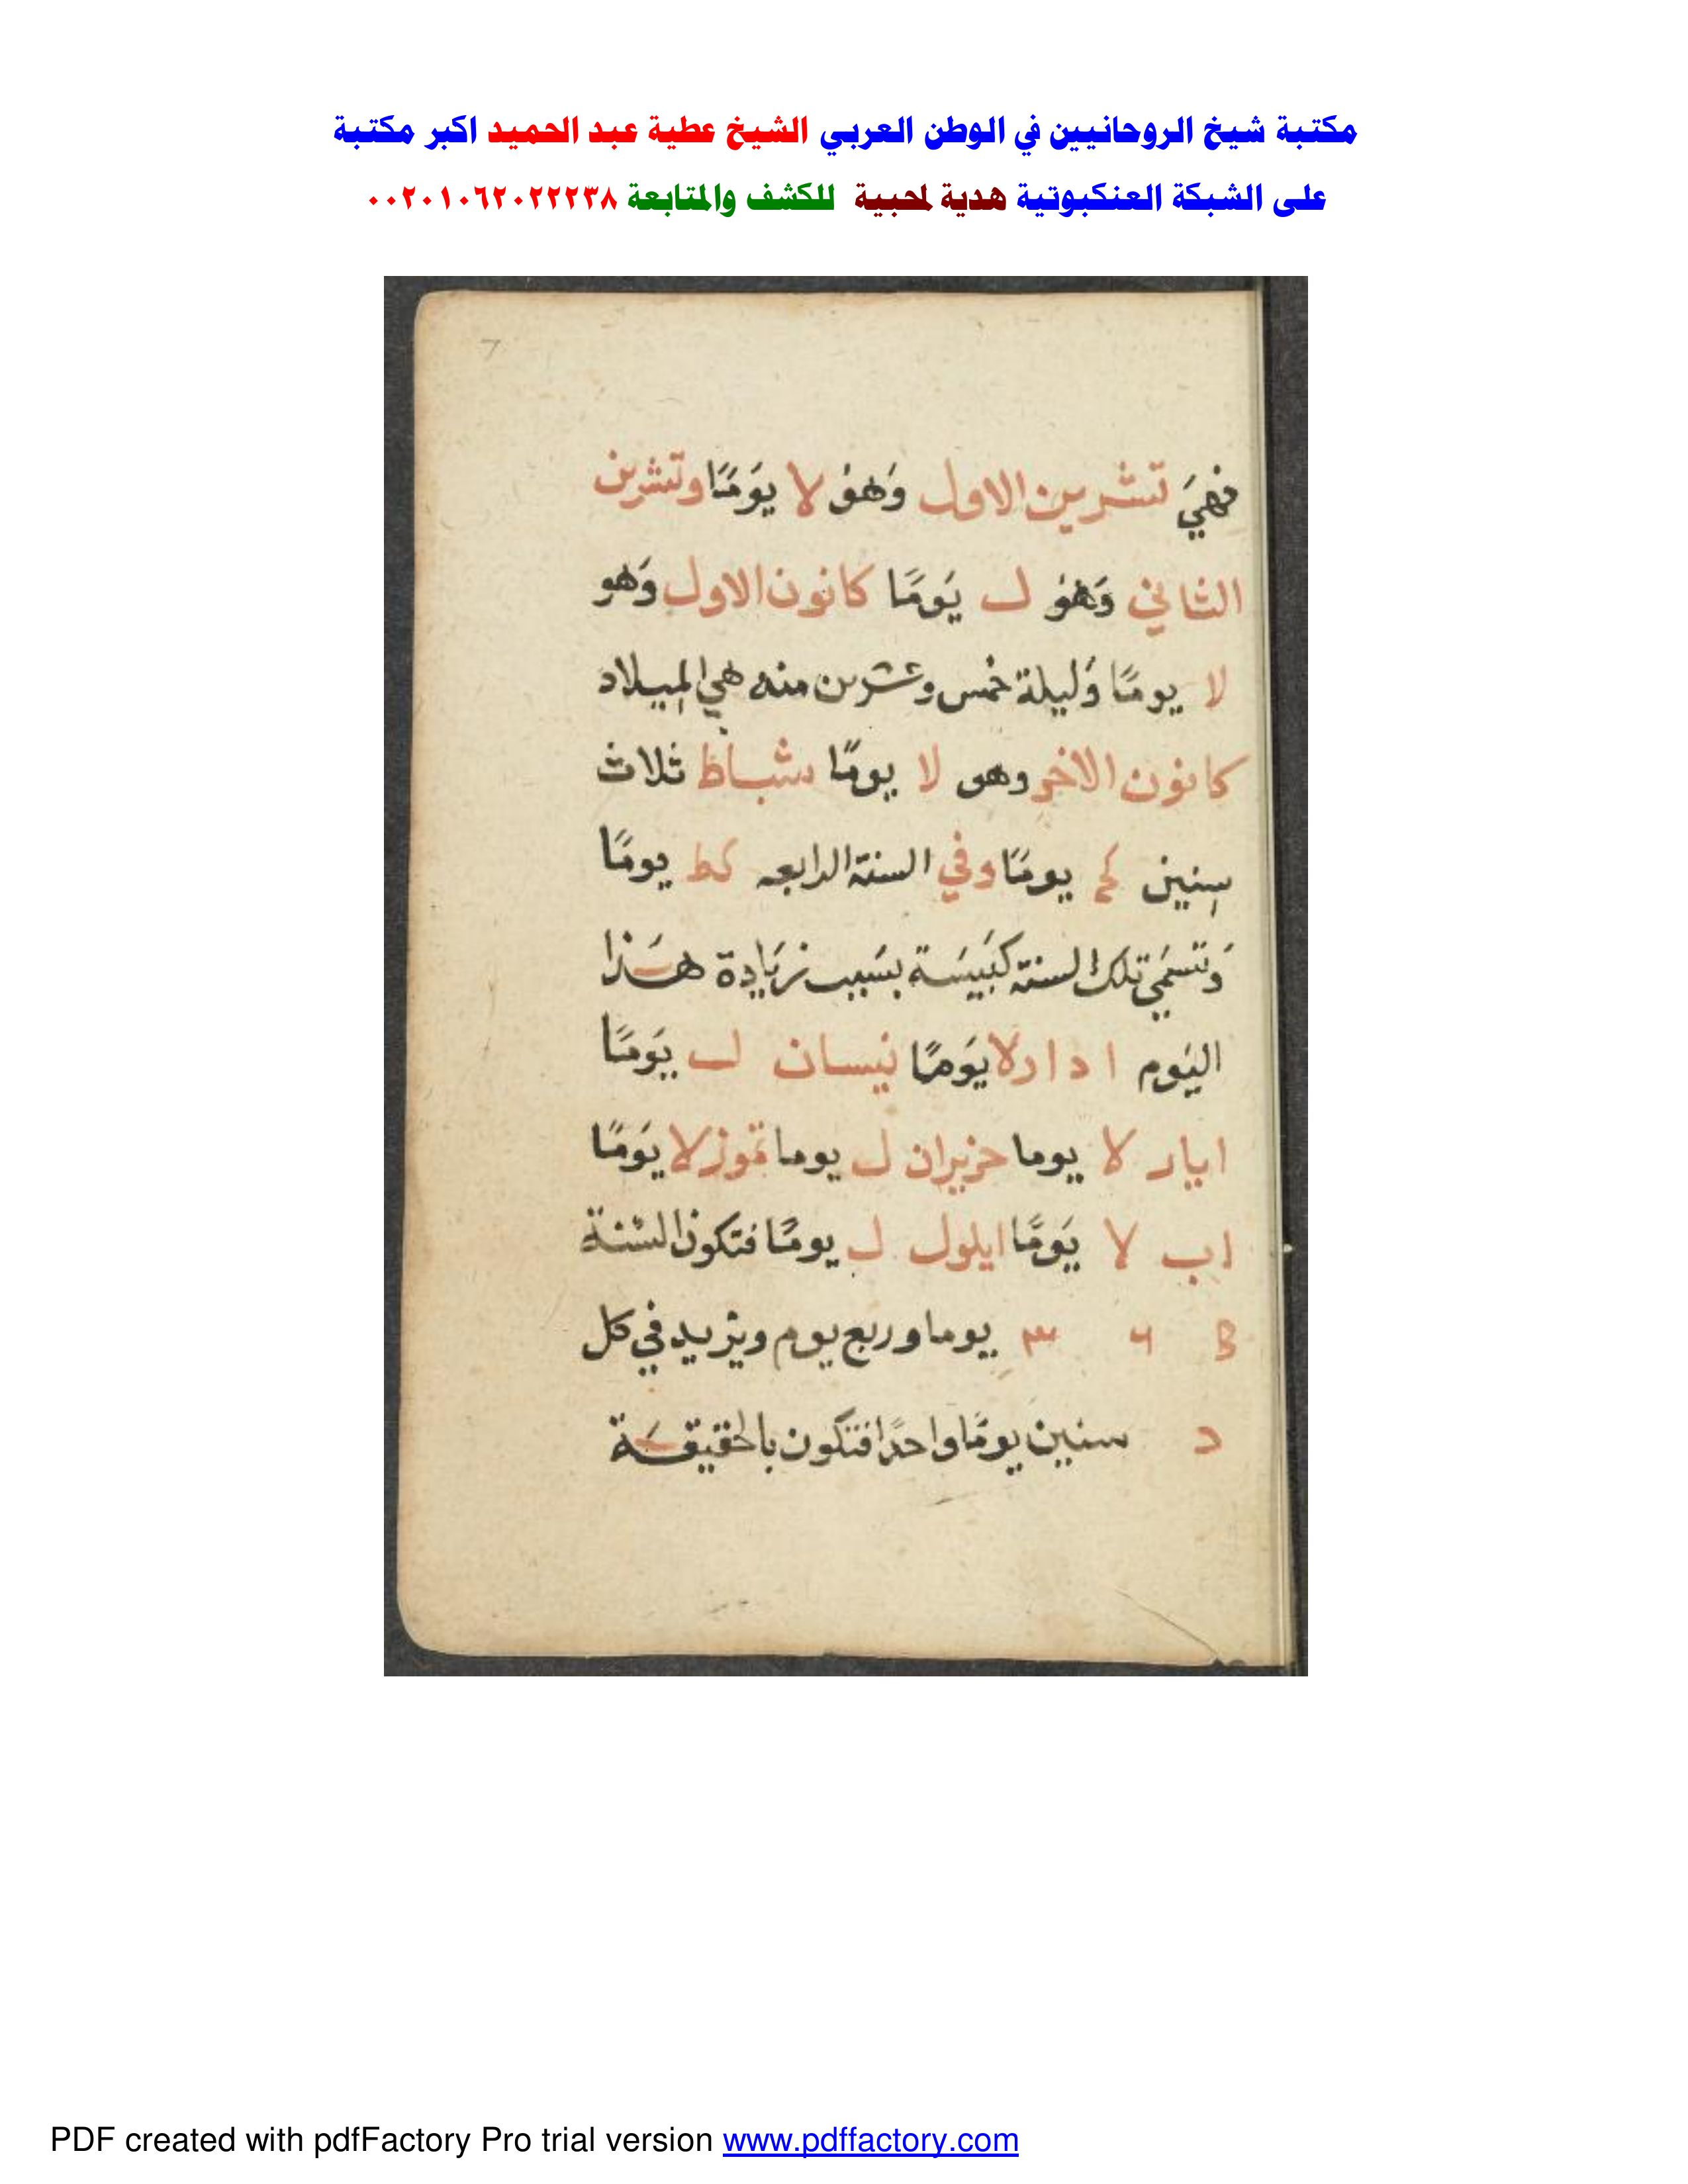 مكتبة شيخ الروحانيين في الوطن العربي الشيخ عطية عبد الحميد اكبر مكتبة
على الشبكة العنكبوتية هدية لمحبية للكشف والمتابعة ٠٠٢٠١٠٦٢٠٢٢٢٣٨
فهيَ تشرين الاول وَهوُ لا يوَمًا وتشرين
الثاني وَهوُ ل يَومًا كانون الاول وَهو
لا يومًا وَليلة خمس وعشرين منه هي الميلاد
كانون الاخر وهو لا يومًا شباط ثلاث
سنين كح يومًا وفي السنة الرابعه كط يومًا
وَتسمَي تلك السنة كبَيسَة بسَبب زيَادة هَذا
اليَوم ادار لا يوَمًا نيسان ل يَومًا
ايار لا يوما حزيران ل يوما تموز لا يَومًا
اب لا يَومًا ايلول ل يومًا فتكون السنة
يوما وربع يوم ويزيد في كل
د سنين يومًا واحدًا فتكون بالحقيقَة
PDF created with pdfFactory Pro trial version www.pdffactory.com